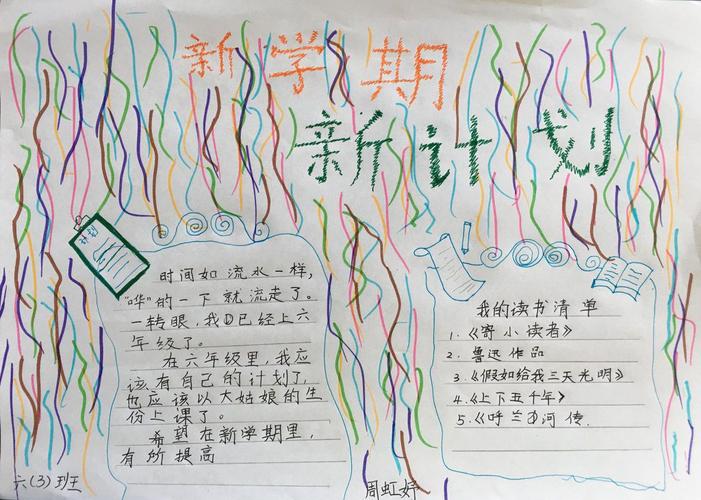 新学期
新计划
计划
时间如流水一样,
"哗"的一下就流走了。
一转眼,我已经上六
年级了。
在六年级里,我应
该有自己的计划了,
也应该以大姑娘的生
份上课了。
希望在新学期里,
有所提高
我的读书清单
1.《寄小读者》
2. 鲁迅作品
3.《假如给我三天光明》
4.《上下五千年》
5.《呼兰河传.
六(3)班
周虹妤